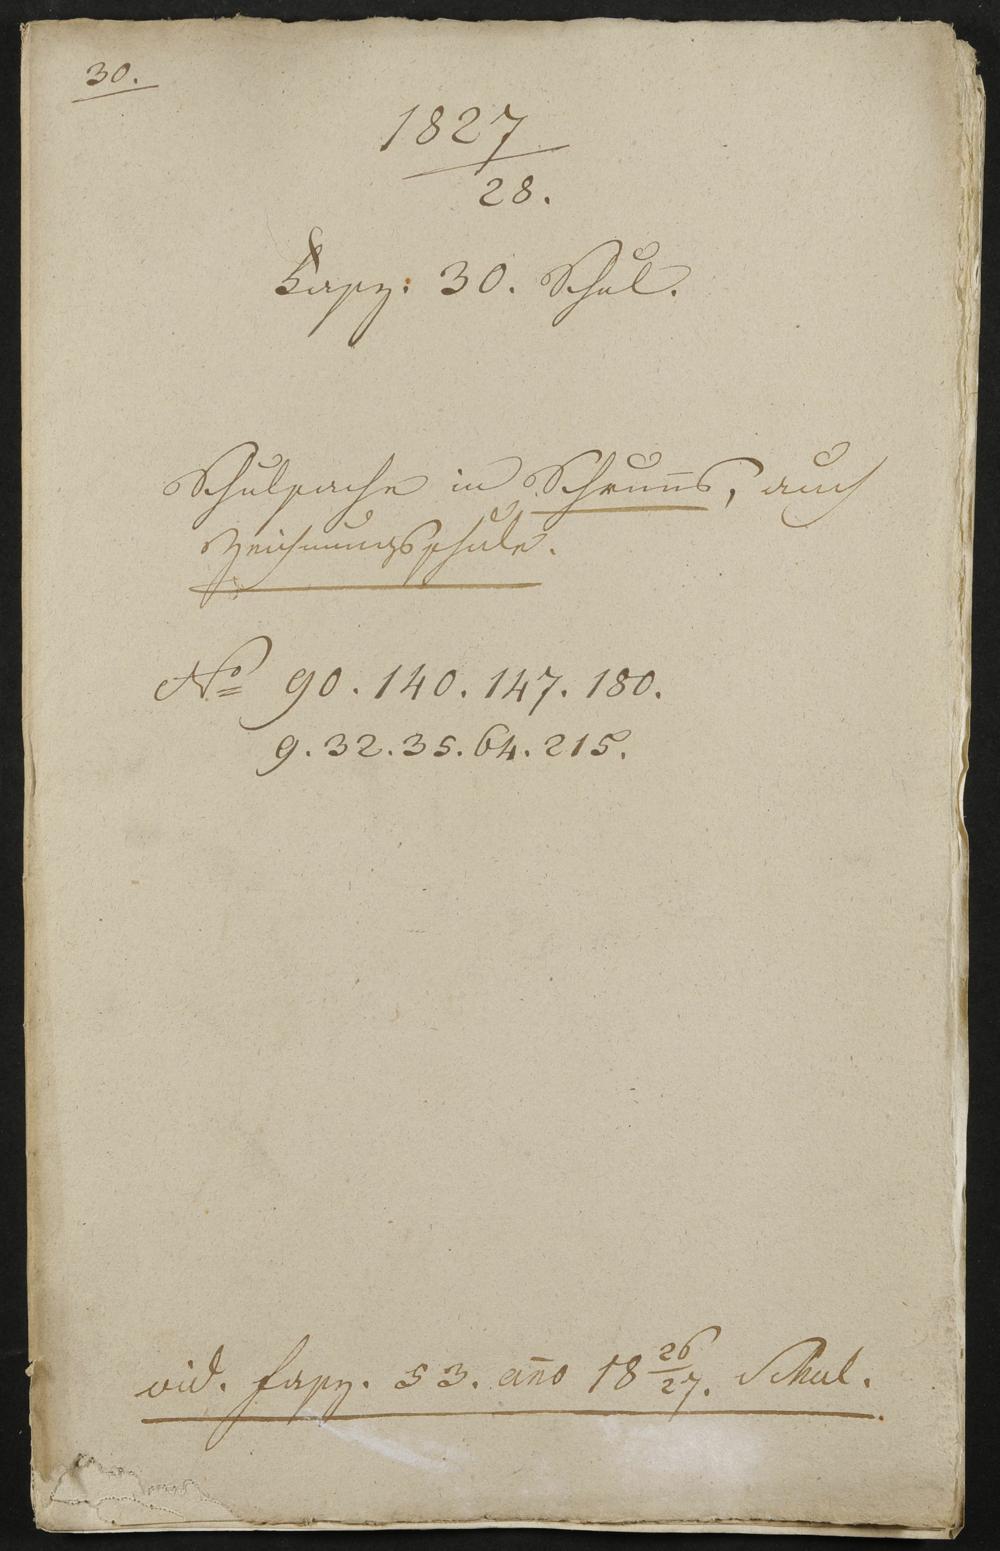 30.
1827
28.
Fasz: 30. Schul.
Schulsache in Schruns, auch
Zeichnungsschule.
No 90. 140. 147. 180.
9. 32. 35. 64. 215.
vid. fasz. 53. año 18 26/27. Schul.